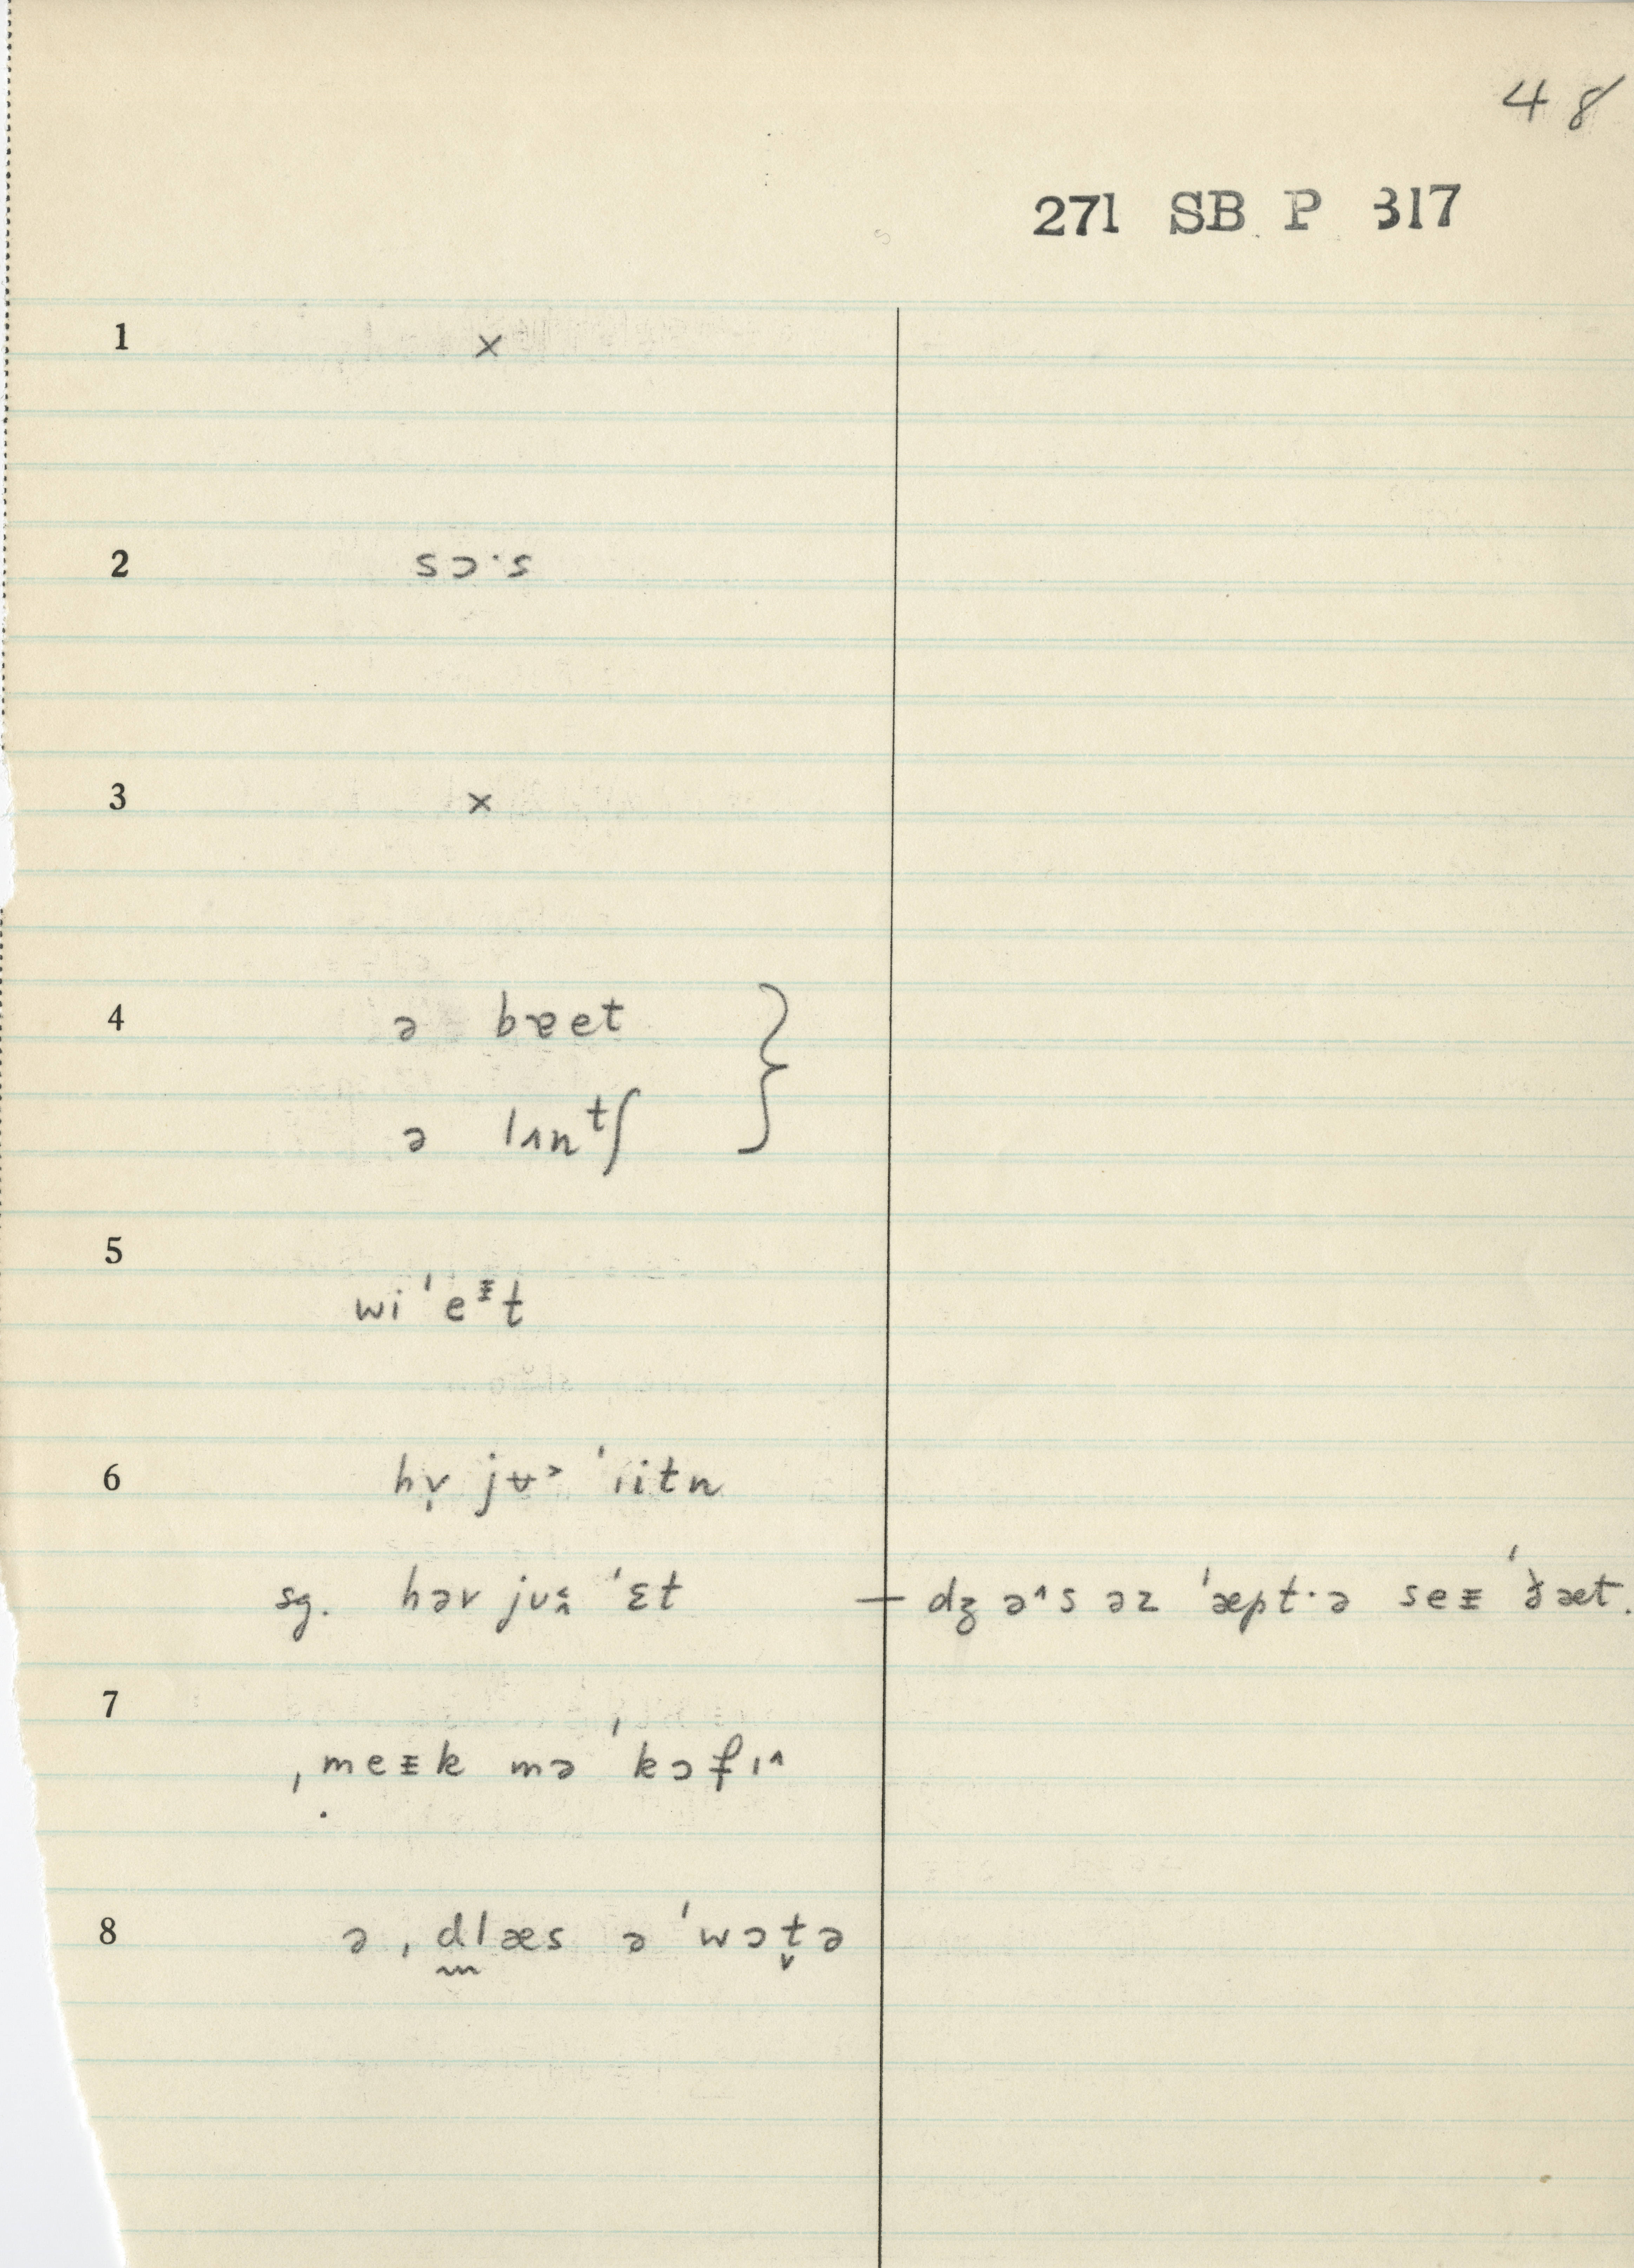 48
271 SB P 317
1 ×
2 sɔ·s
3 ×
4 ə bɐet }
ə lʌnᵗʃ
5
wi ˈeᵻt
6 hv̩ jʉ˃ ˈiitn
sg. həv jʊ ˈɛt — dʒə˄s əz ˈæpt·ə seᵻ ˈðæt.
7
ˌmeᵻk mə ˈkɔfɪ˄
8 ə ˌdlæs ə ˈwɔt̬ə